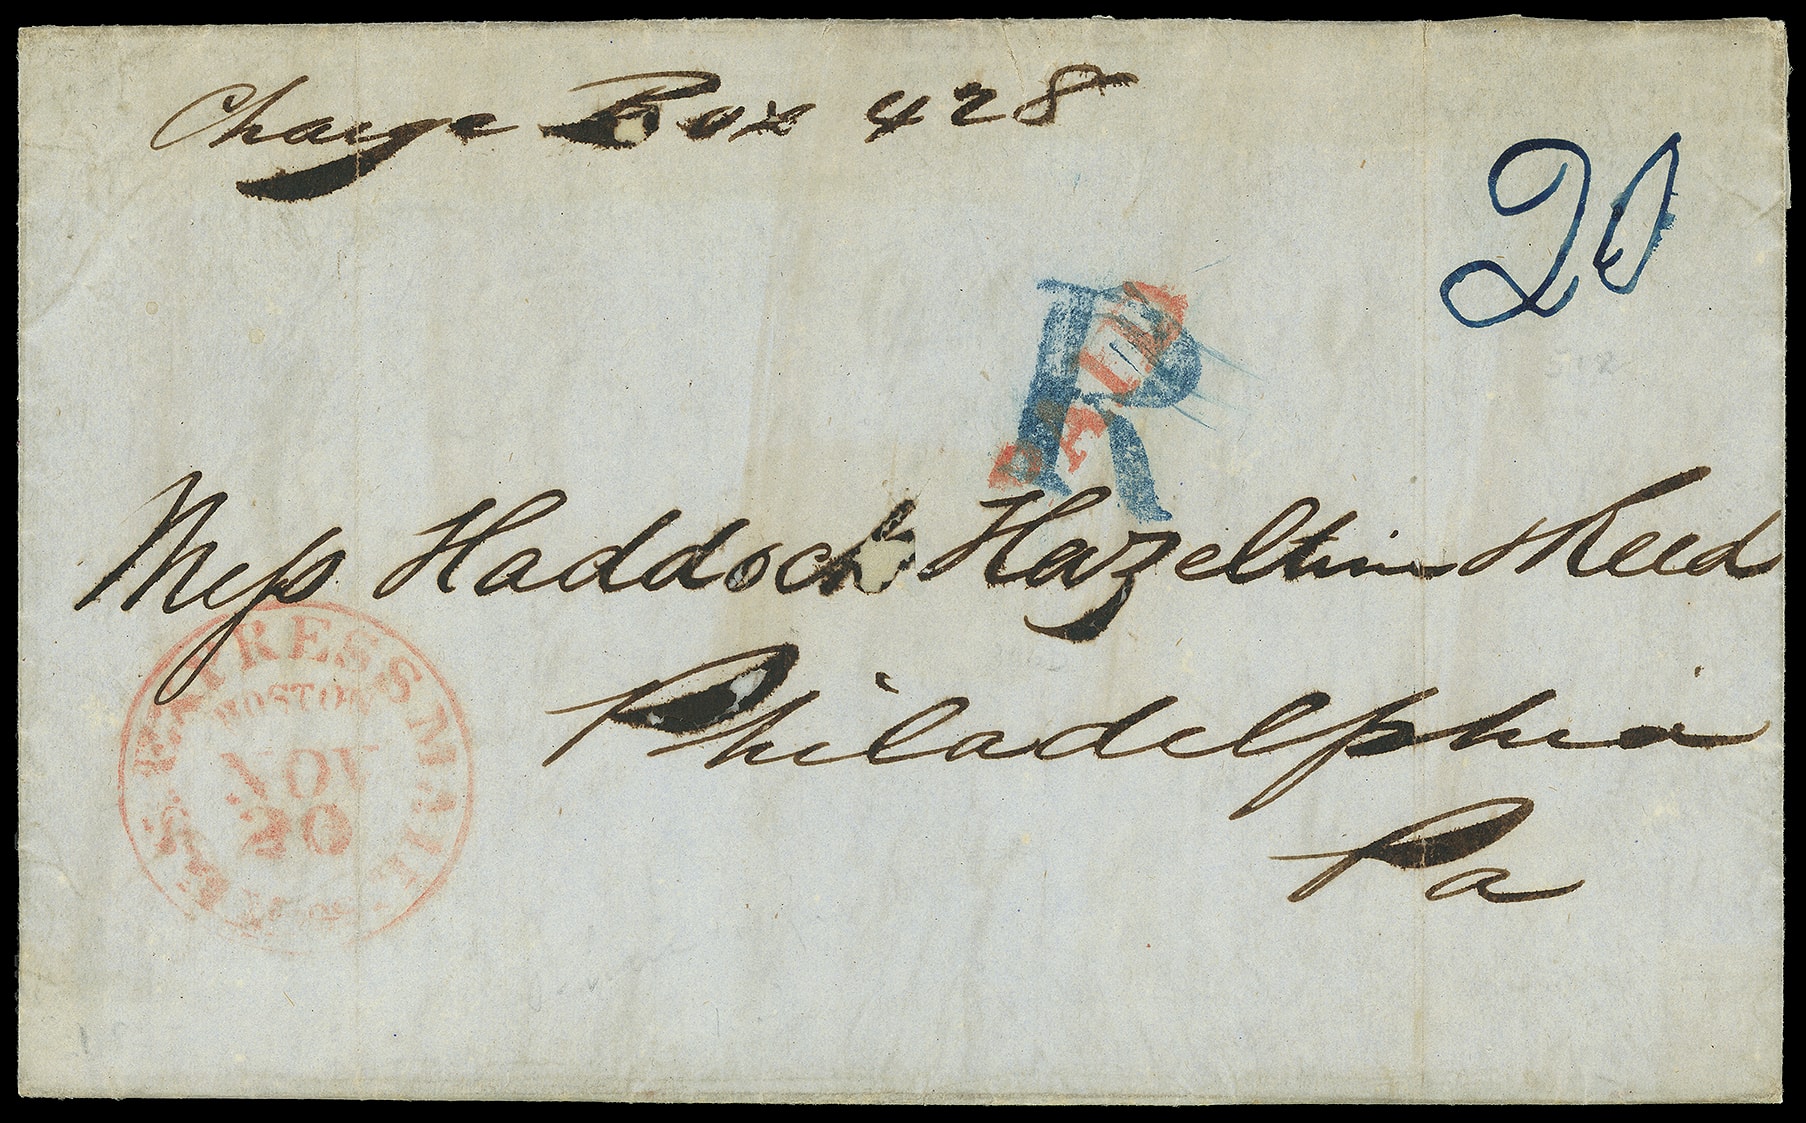 Charge Box 428
20
R
PAID
Mess Haddock Hazeltine & Reed
Philadelphia
Pa
U.S. EXPRESS MAIL
BOSTON
NOV
20